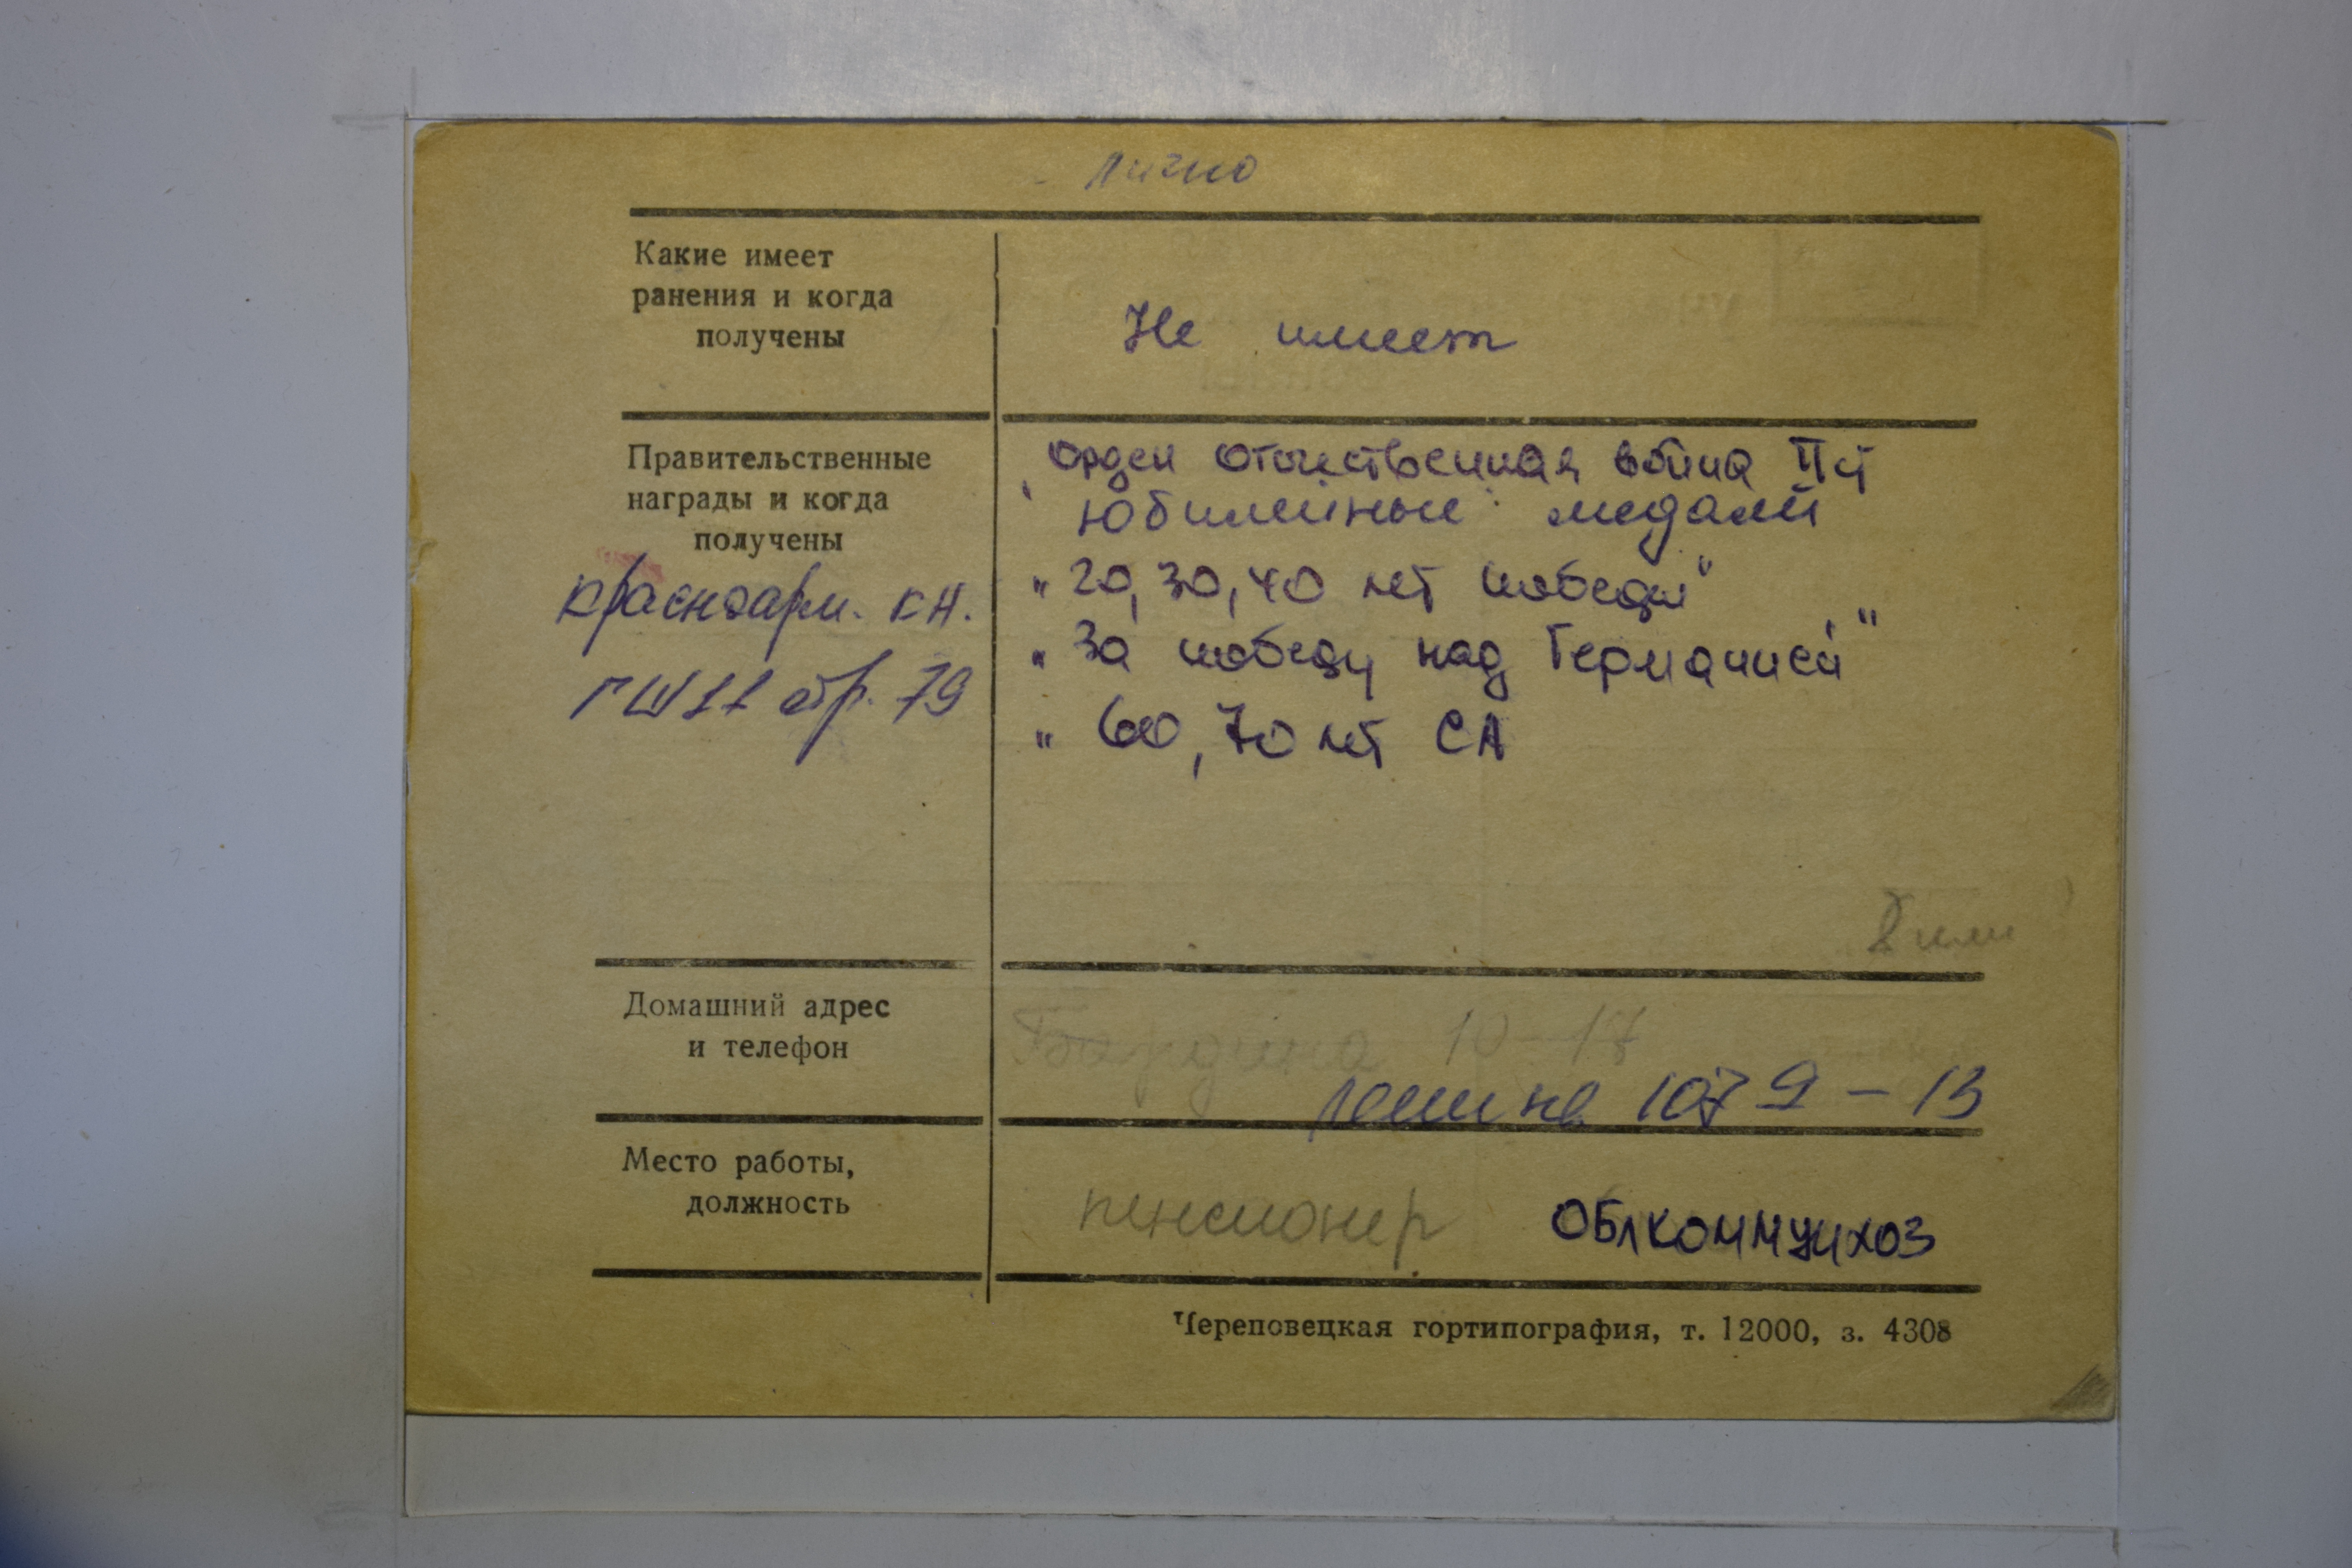 лично
Какие имеет
ранения и когда
получены
Не имеет
Правительственные
награды и когда
получены
Красноарм. кн.
Орден Отечественная война II ст
Юбилейные медали
"20, 30, 40 лет победы"
"За победу над Германией"
" 60, 70 лет СА
Домашний адрес
и телефон
Бардина 10-17
Ленина 107 9 - 13
Место работы,
должность
пенсионер ОБЛКОММУНХОЗ
Череповецкая гортипография, т. 12000, з. 4308